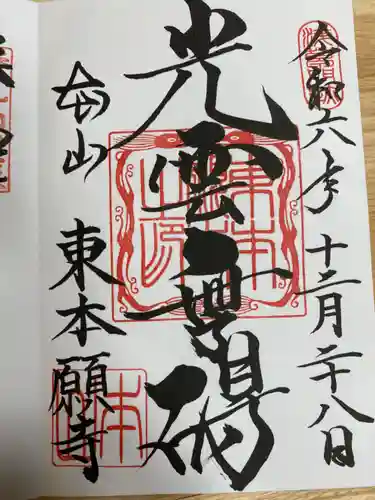 令和六年十二月二十八日
光雲無碍
本山 東本願寺